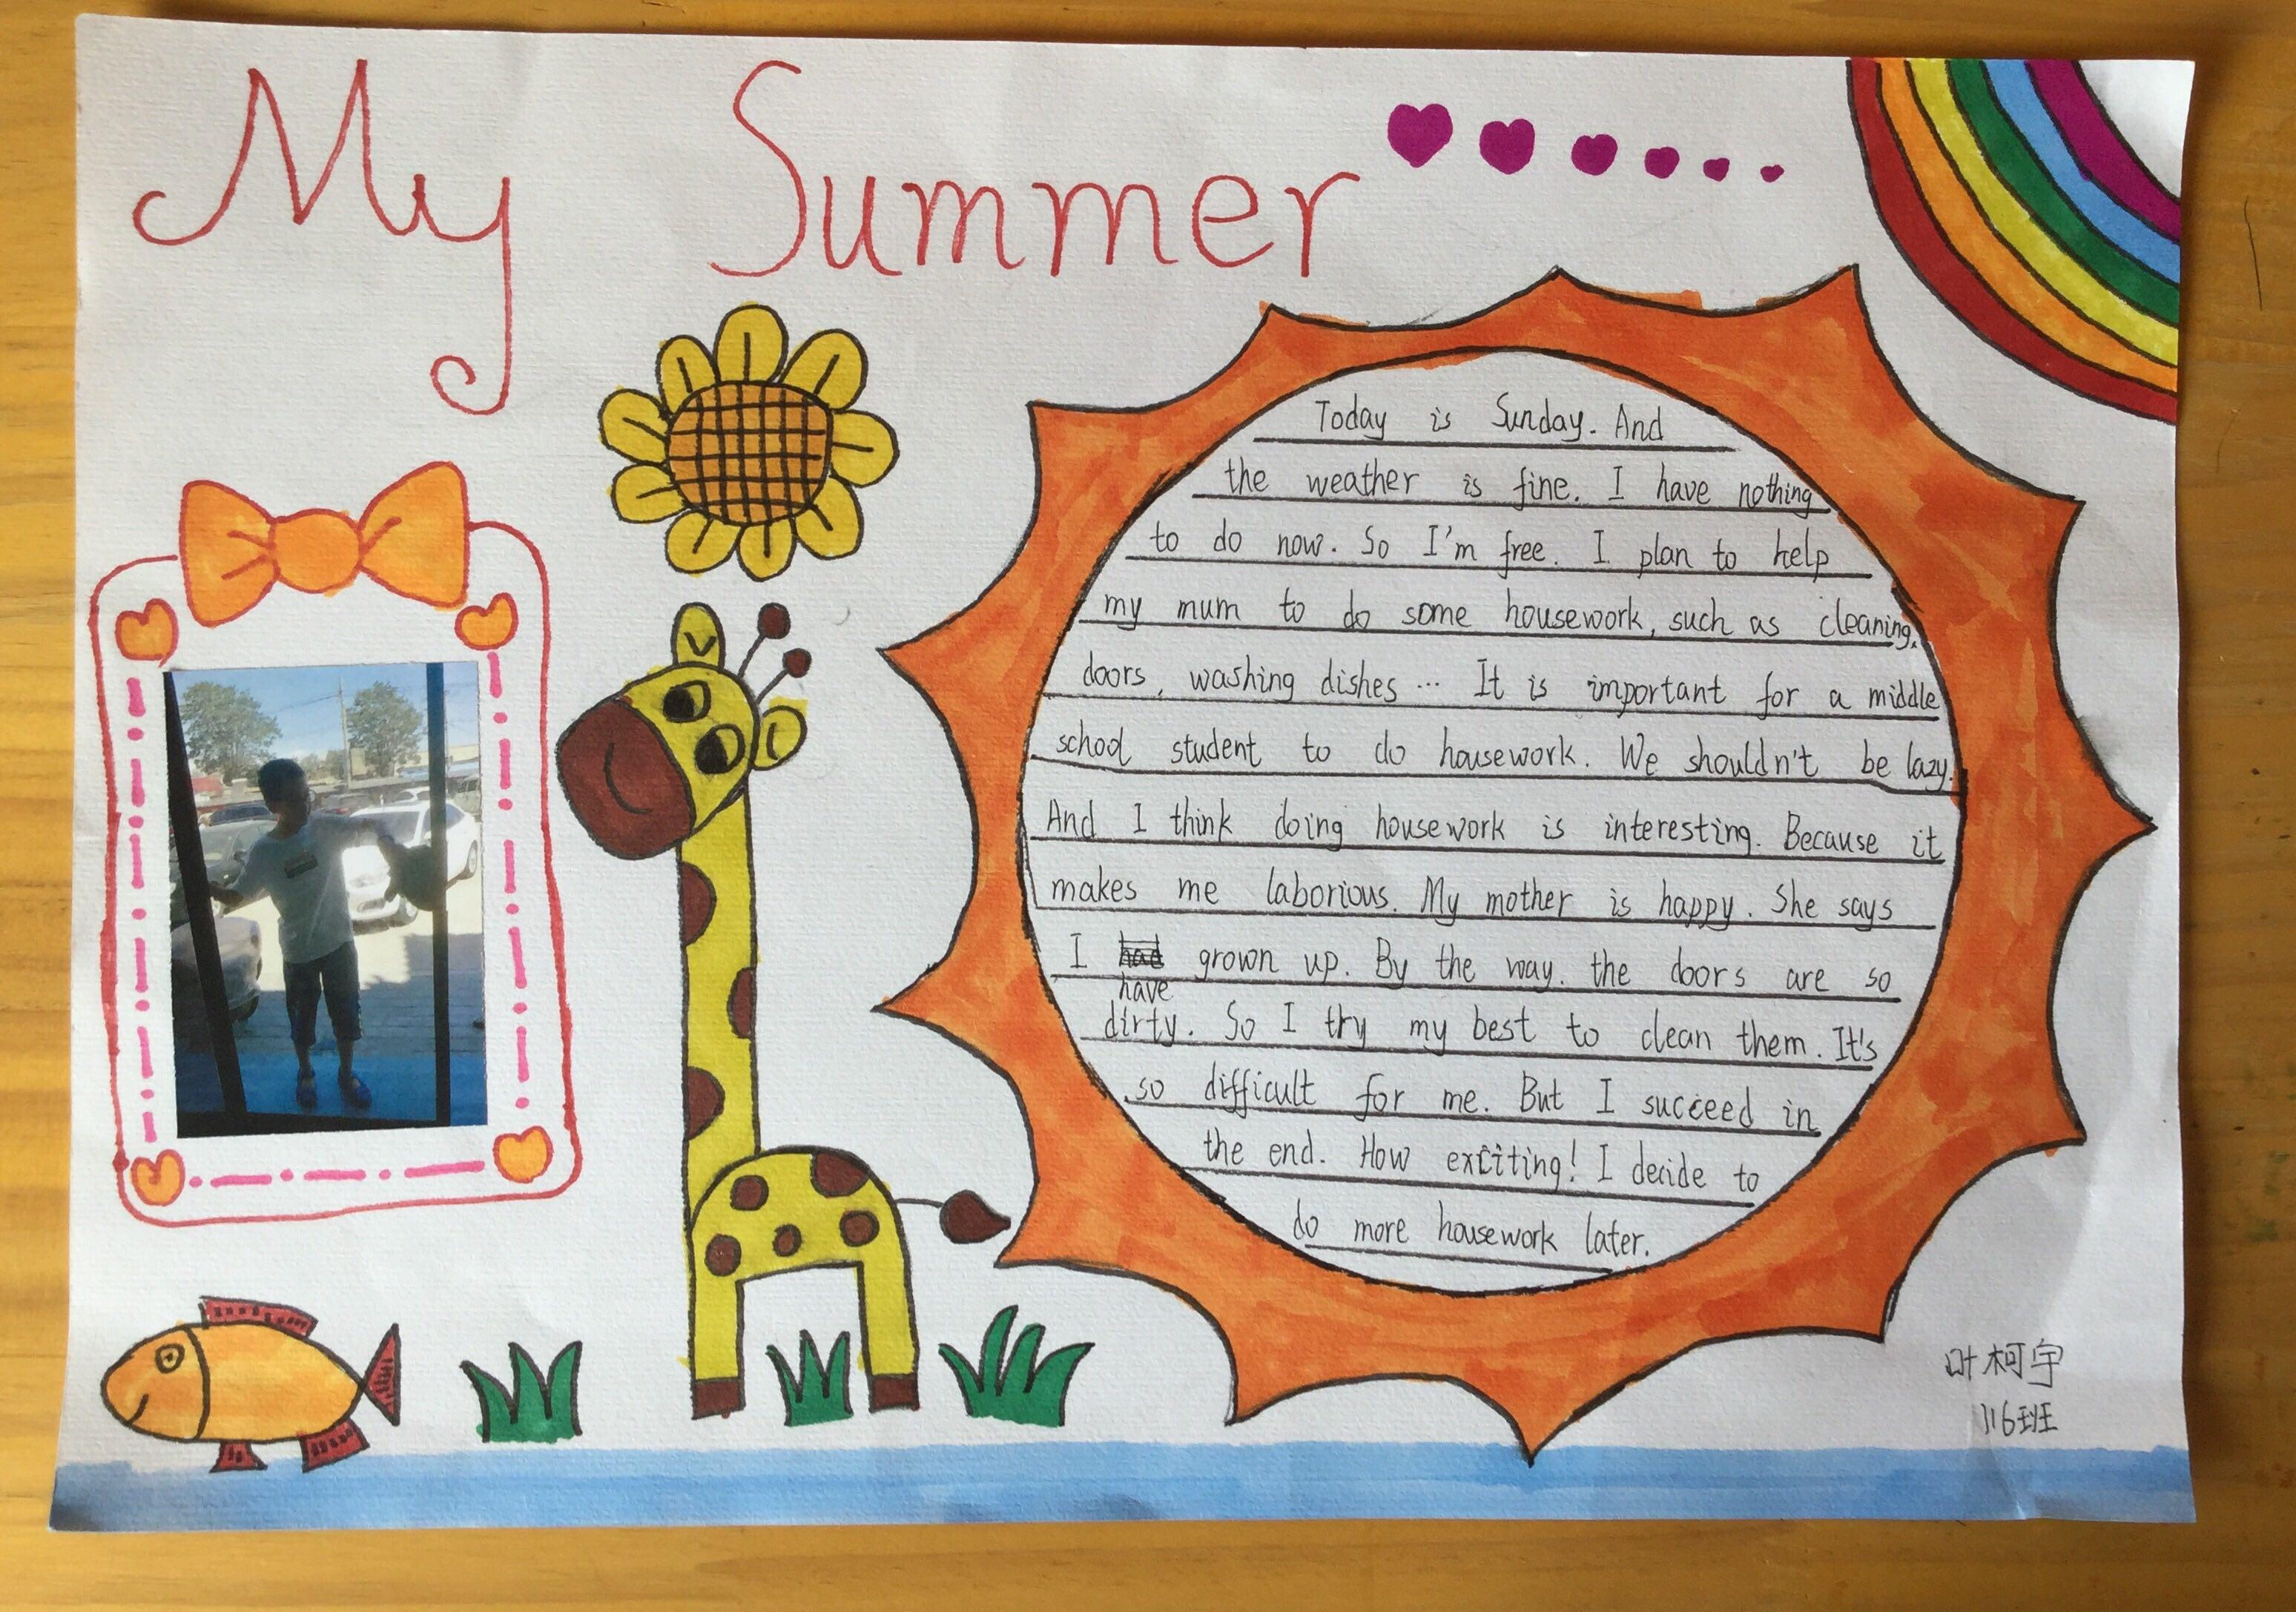 My Summer
Today is Sunday. And
the weather is fine. I have nothing
to do now. So I'm free. I plan to help
my mum to do some housework, such as cleaning,
doors, washing dishes ... It is important for a middle
school student to do housework. We shouldn't be lazy.
And I think doing housework is interesting. Because it
makes me laborious. My mother is happy. She says
I have grown up. By the way. the doors are so
dirty. So I try my best to clean them. It's
so difficult for me. But I succeed in
the end. How exciting! I decide to
do more housework later.
叶柯宇
116班